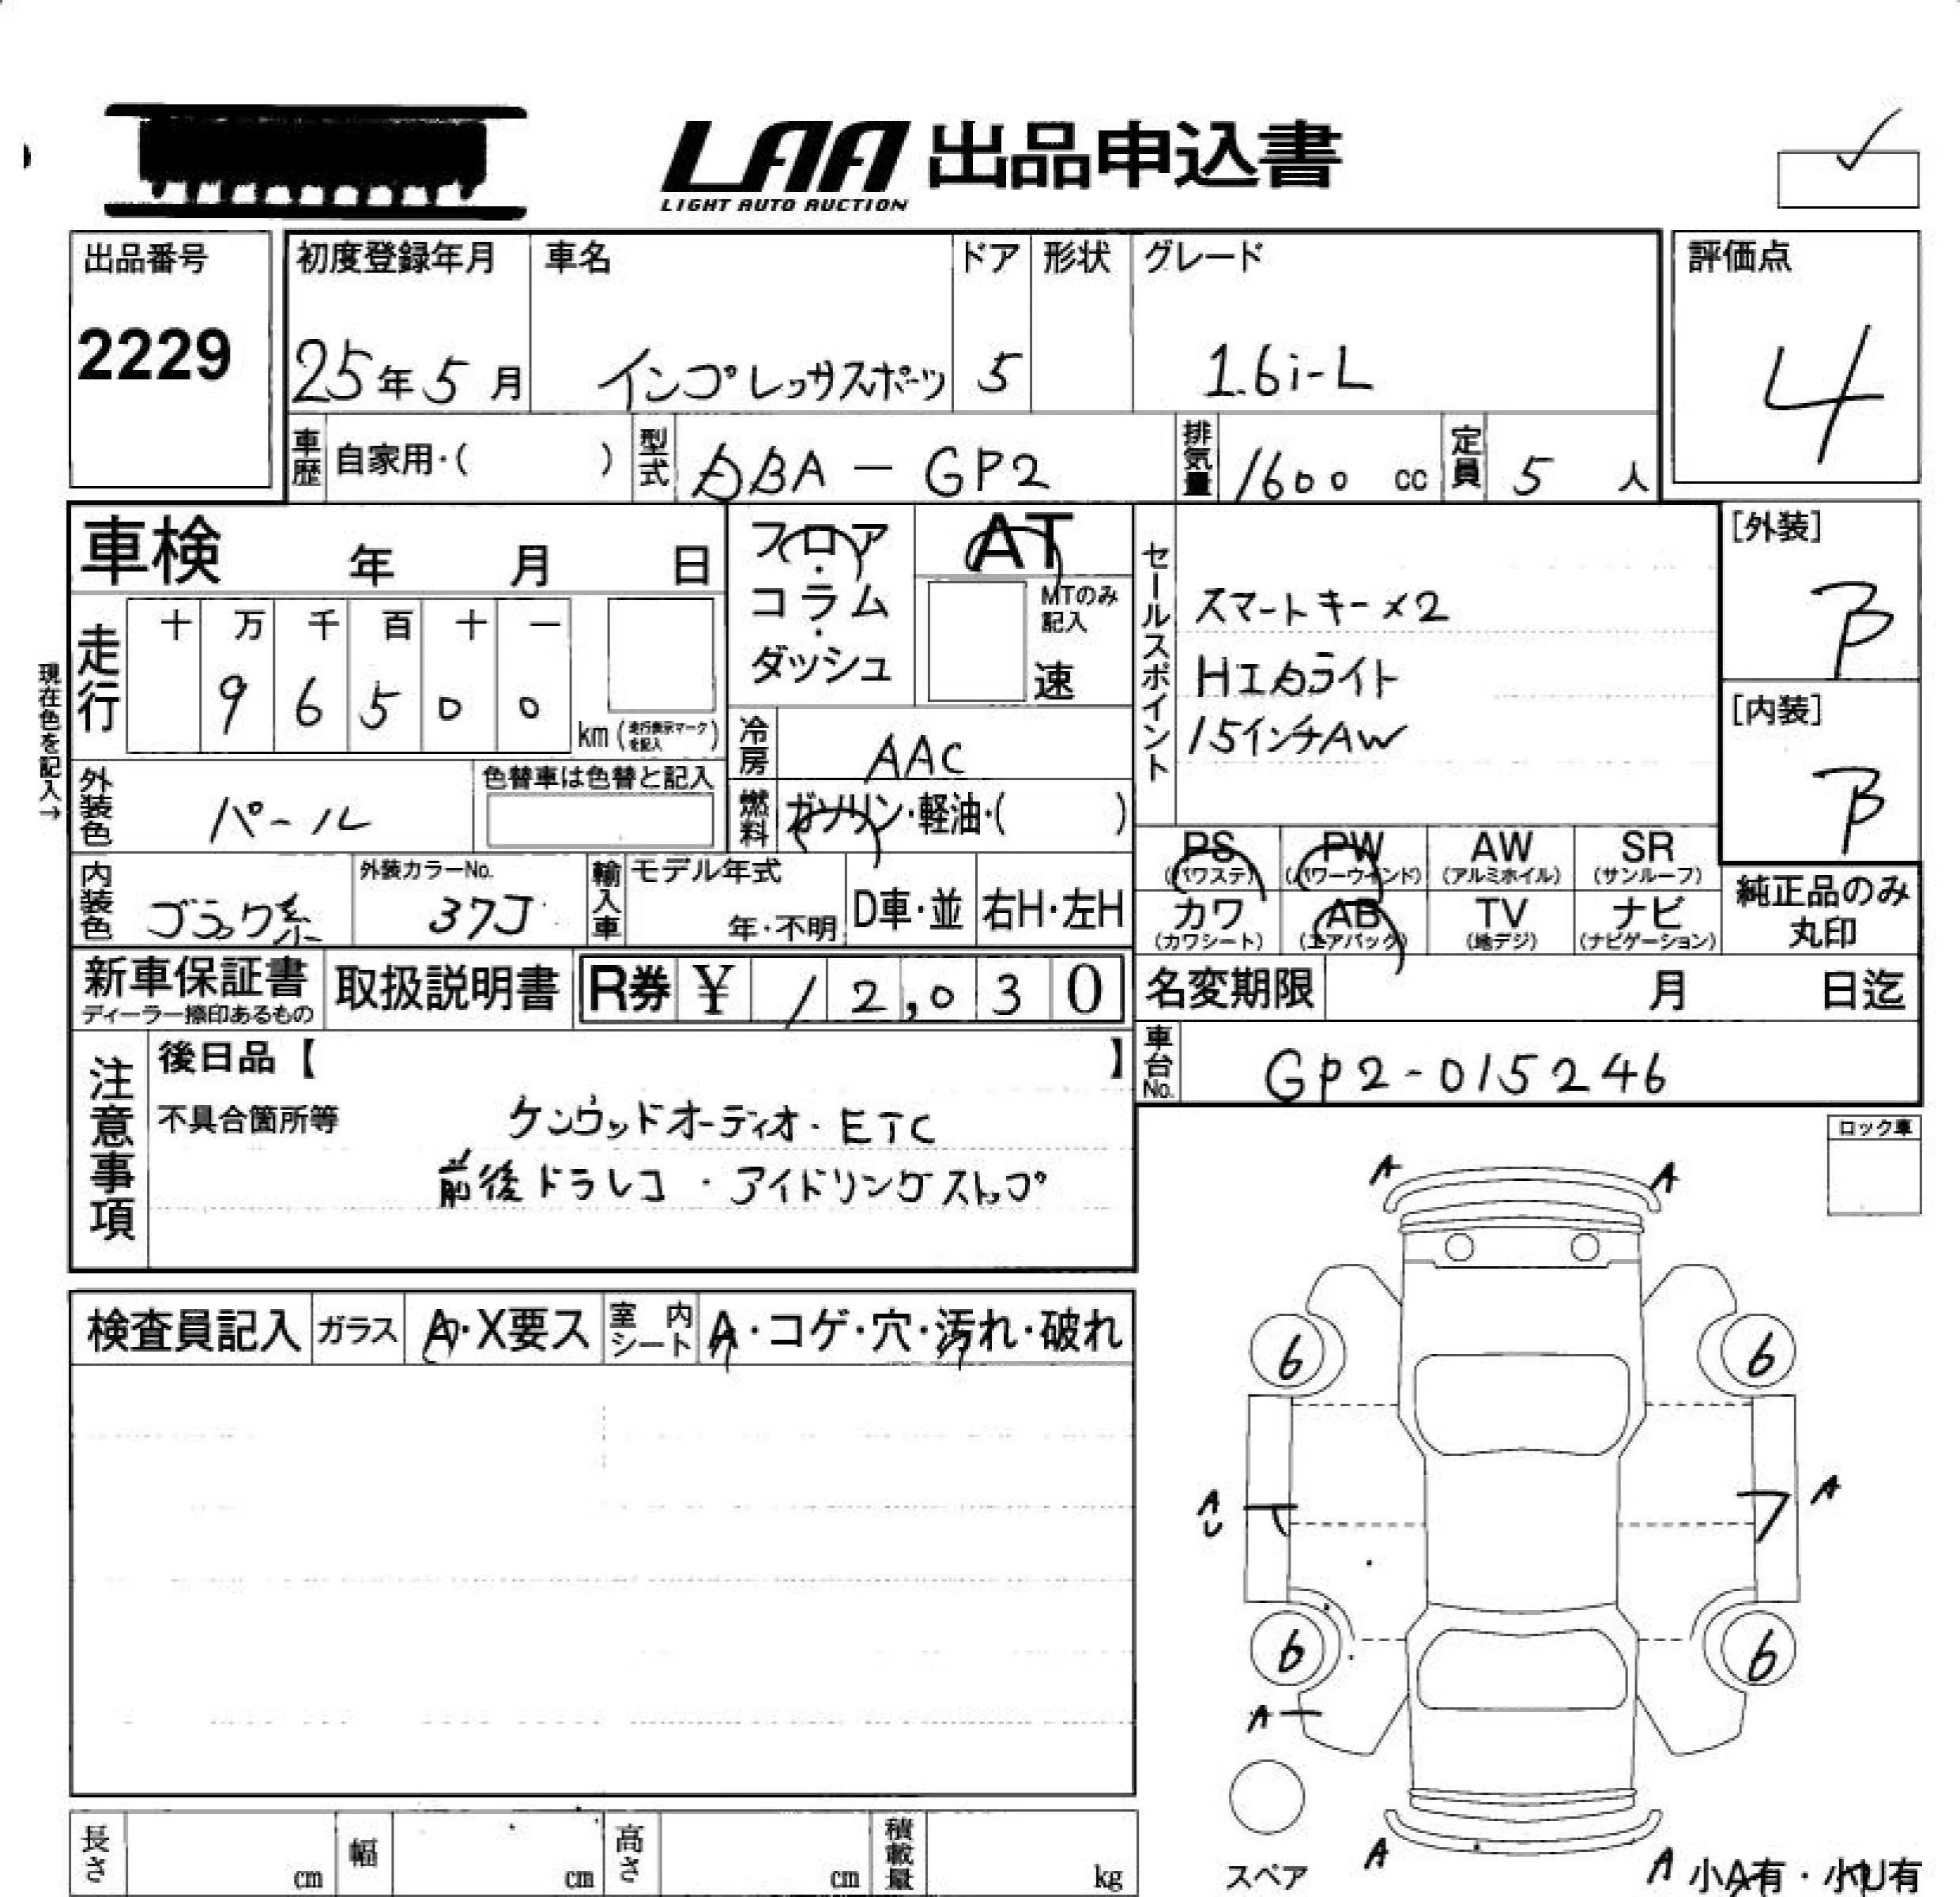 LAA 出品申込書
LIGHT AUTO AUCTION
出品番号
2229
初度登録年月
25年5月
車名
インプレッサスポーツ
ドア
5
形状
グレード
1.6i-L
評価点
4
車歴
自家用・( )
型式
DBA-GP2
排気量
1600 cc
定員
5 人
車検 年 月 日
フロア・コラム・ダッシュ
AT
MTのみ記入
速
セールスポイント
スマートキー×2
HIDライト
15インチAW
[外装]
B
[内装]
B
現在色を記入→
走行
十 万 千 百 十 一
9 6 5 0 0
km (走行表示マークを記入)
冷房
AAC
燃料
ガソリン・軽油・( )
外装色
パール
色替車は色替と記入
内装色
ブラック系
外装カラーNo.
37J
輸入車
モデル年式
年・不明
D車・並
右H・左H
PS (パワステ)
PW (パワーウインド)
AW (アルミホイル)
SR (サンルーフ)
カワ (カワシート)
AB (エアバック)
TV (地デジ)
ナビ (ナビゲーション)
純正品のみ
丸印
新車保証書
ディーラー捺印あるもの
取扱説明書
R券 ¥ 12,030
名変期限 月 日迄
車台No.
GP2-015246
注意事項
後日品【 】
不具合箇所等
ケンウッドオーディオ・ETC
前後ドラレコ・アイドリングストップ
ロック車
検査員記入
ガラス
A・X要ス
室内シート
A・コゲ・穴・汚れ・破れ
A A
6 6
A
U
A
6 6
A
A A
スペア
小A有・小U有
長さ cm
幅 cm
高さ cm
積載量 kg